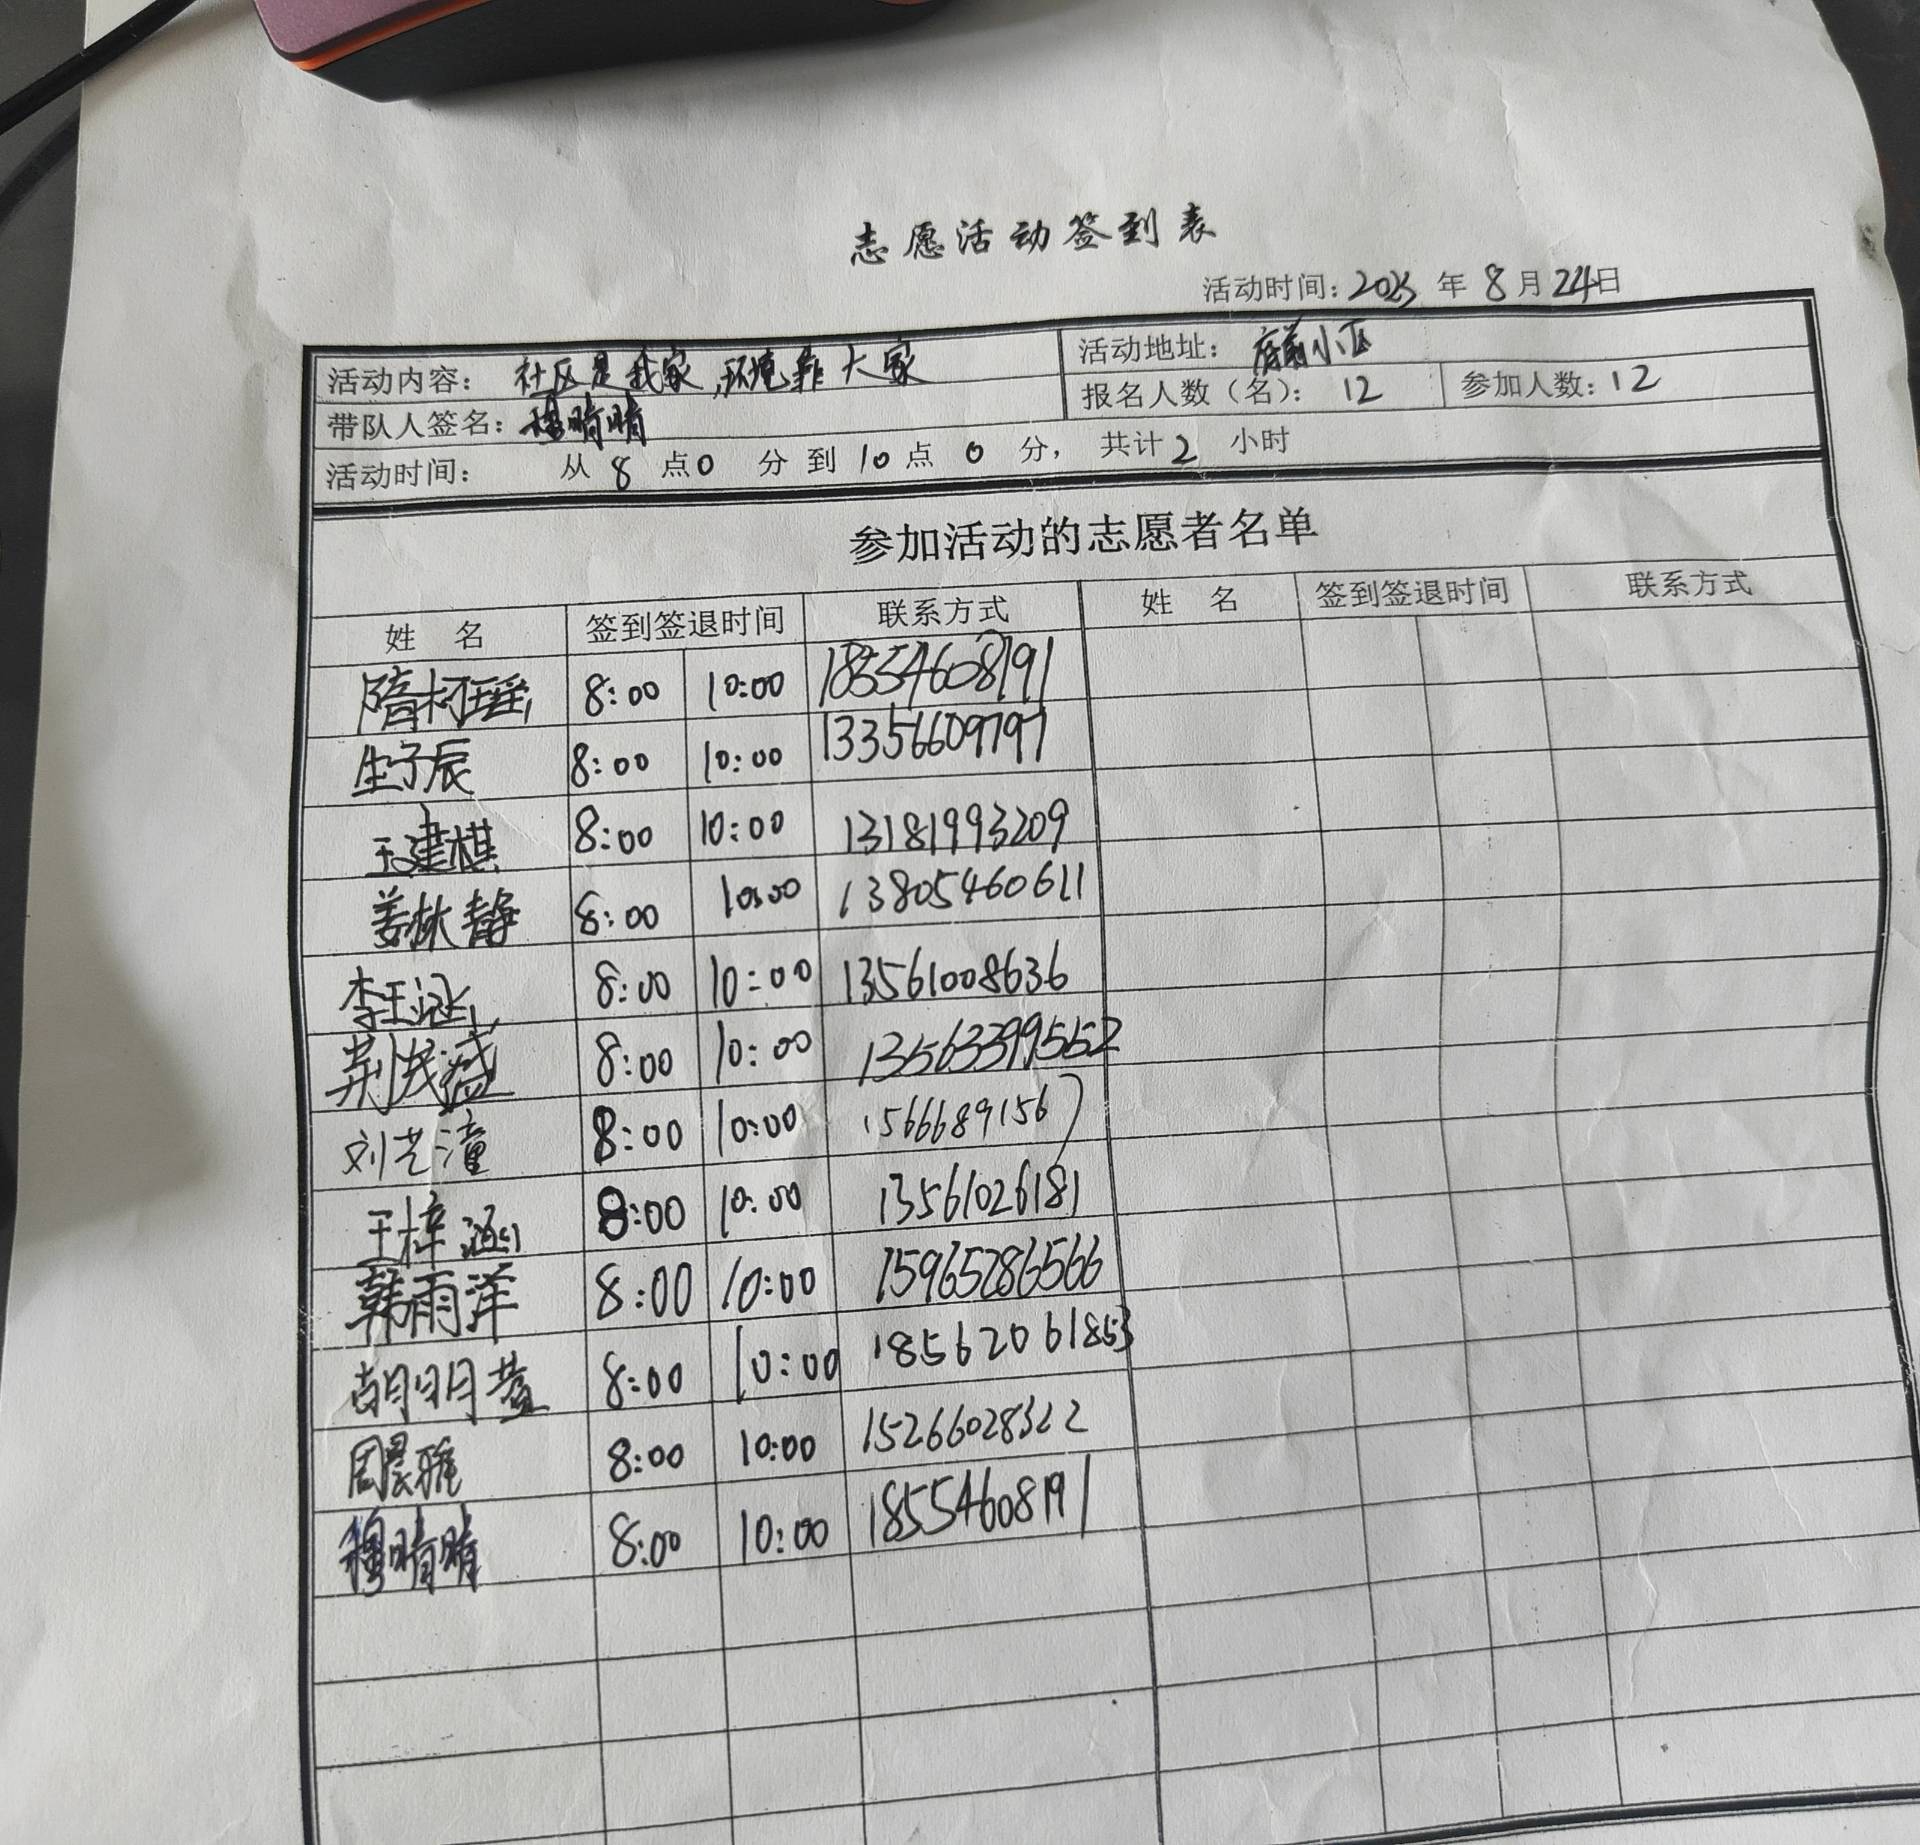 志愿活动签到表
活动时间：2025年8月24日
活动内容：社区是我家，环境靠大家
活动地址：府前小区
带队人签名：穆晴晴
报名人数（名）：12 参加人数：12
活动时间： 从8点0分到10点0分，共计2小时
参加活动的志愿者名单
姓名 签到签退时间 联系方式 姓名 签到签退时间 联系方式
隋柯瑶 8:00 10:00 18554608191
生子辰 8:00 10:00 13356609797
王建棋 8:00 10:00 13181993209
姜林静 8:00 10:00 13805460611
李玉涵 8:00 10:00 13561008636
荆茂盛 8:00 10:00 13563399552
刘艺潼 8:00 10:00 15666891567
王梓涵 8:00 10:00 13561026181
韩雨洋 8:00 10:00 15965286566
胡明 8:00 10:00 18562061853
周晨雅 8:00 10:00 15266028322
穆晴晴 8:00 10:00 18554608191